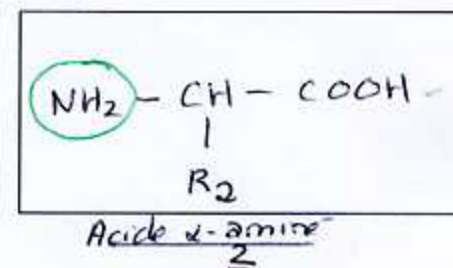 NH₂ – CH – COOH –
|
R₂
Acide α-aminé
2